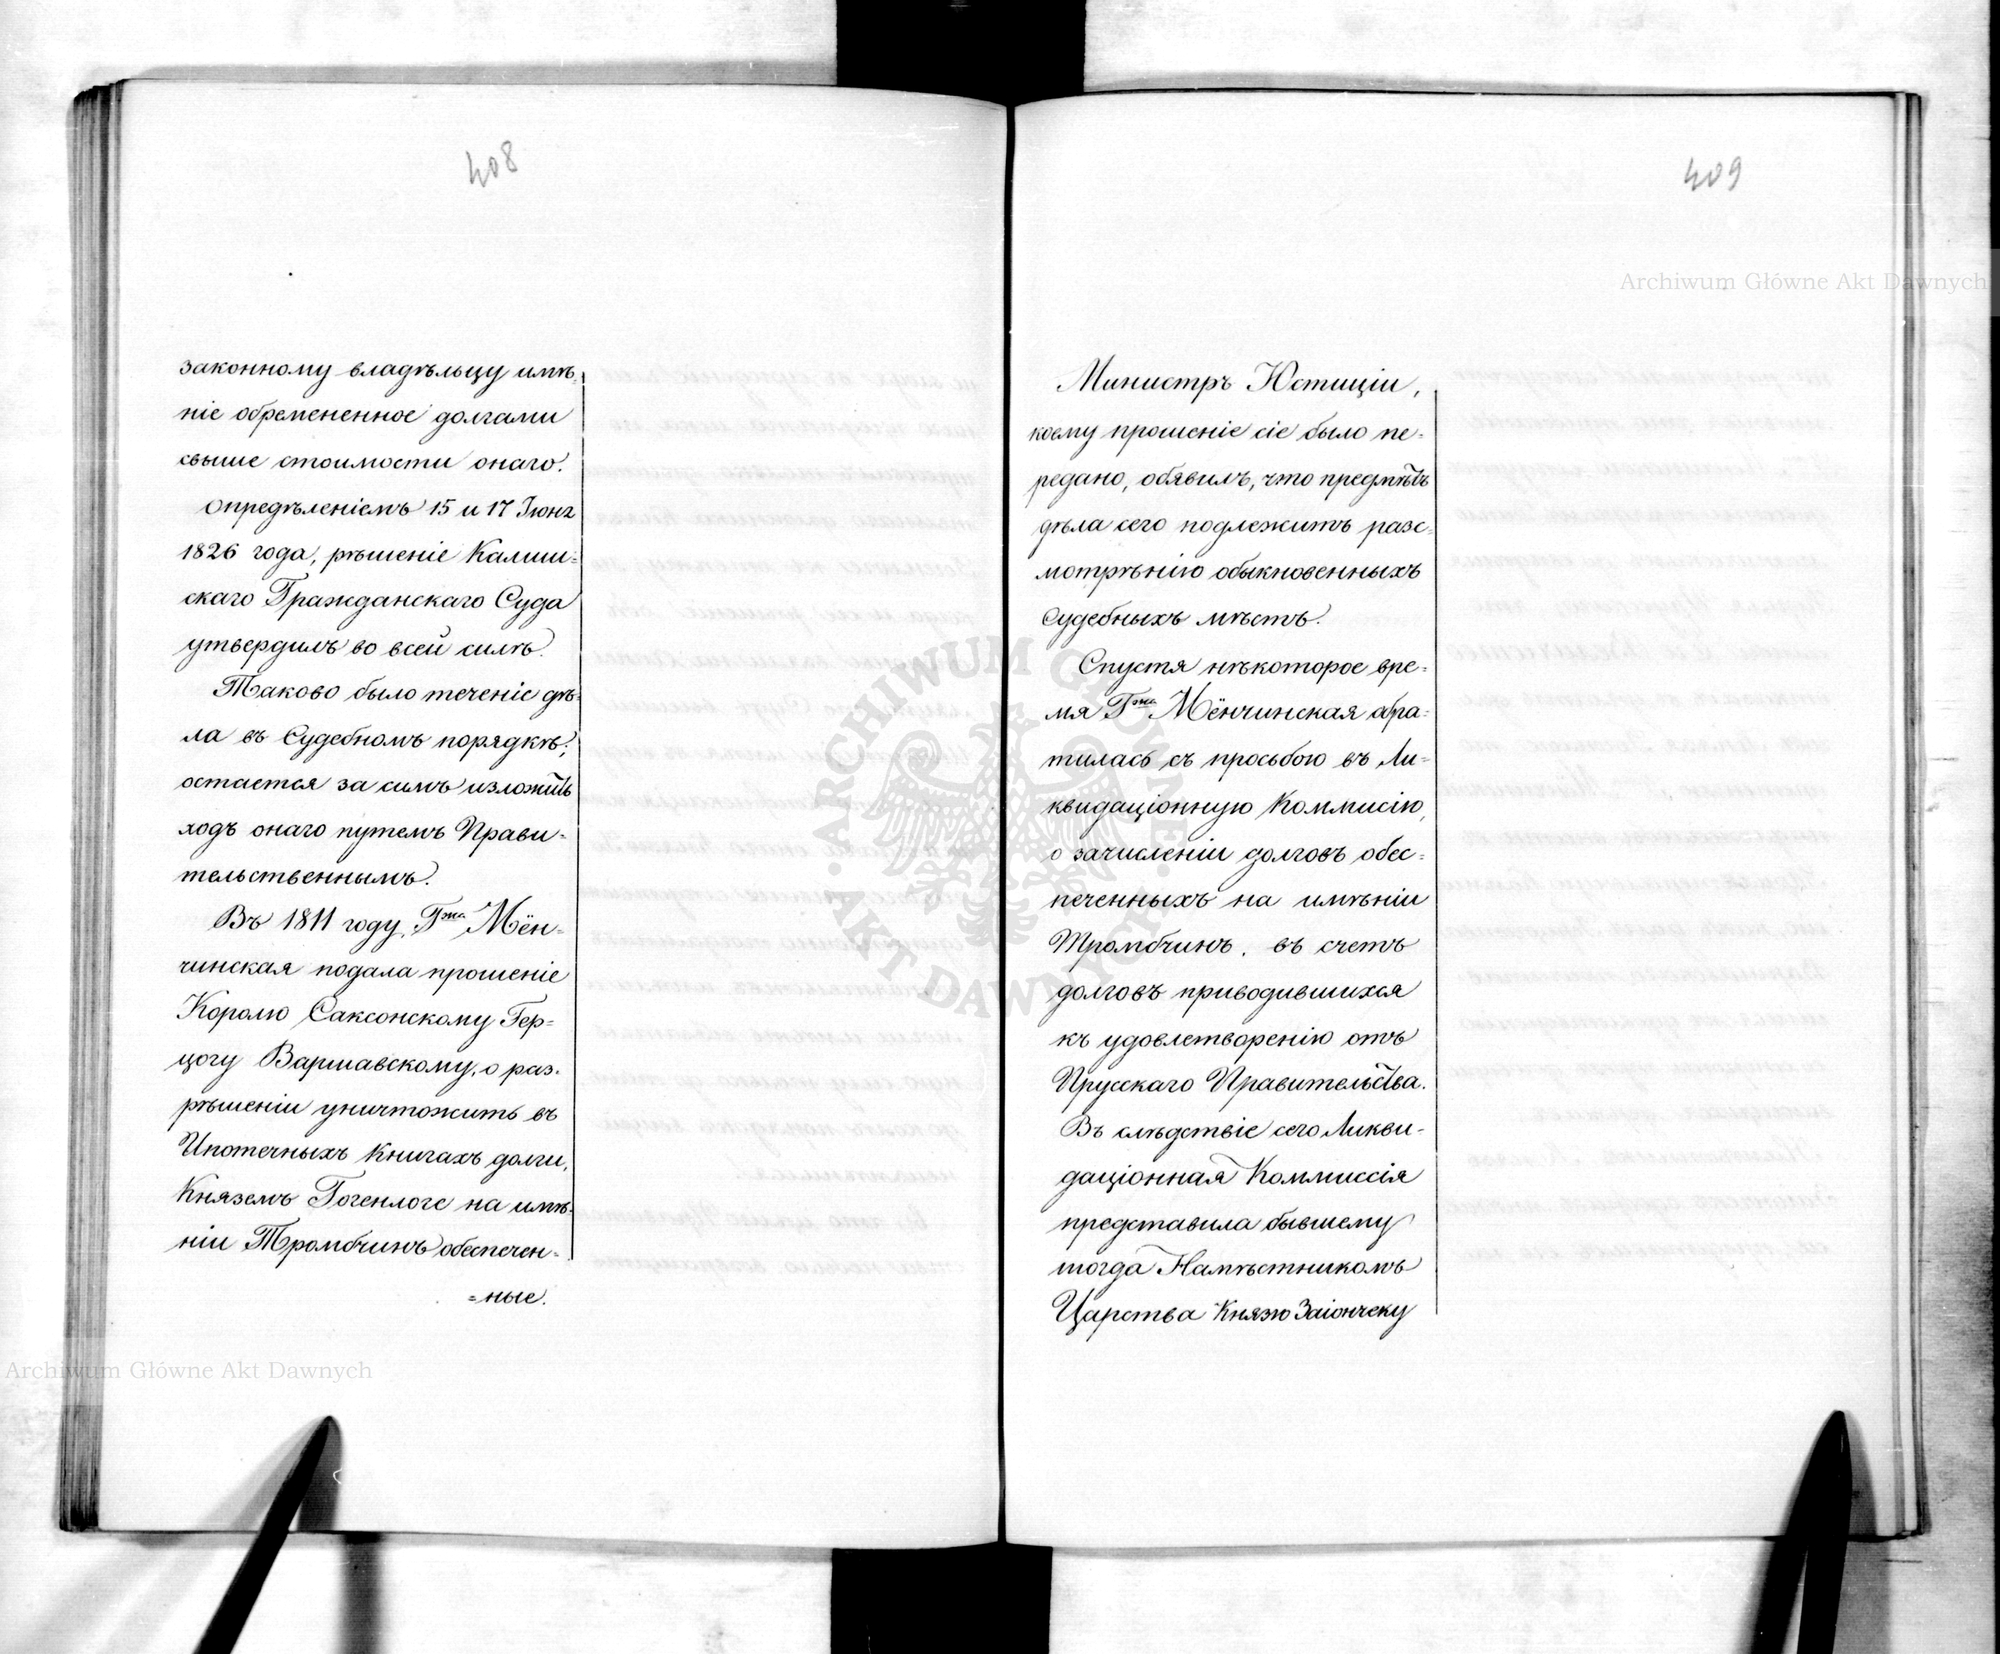 408
законному владѣльцу имѣ-
ніе обремененное долгами
свыше стоимости онаго.
Опредѣленіемъ 15 и 17 Іюня
1826 года, рѣшеніе Калиш-
скаго Гражданскаго Суда
утвердилъ во всей силѣ.
Таково было теченіе дѣ-
ла въ Судебномъ порядкѣ;
остается за симъ изложить
ходъ онаго путемъ Прави-
тельственнымъ.
Въ 1811 году, Гжа Мён-
чинская подала прошеніе
Королю Саксонскому Гер-
цогу Варшавскому, о раз-
рѣшеніи уничтожить въ
Ипотечныхъ Книгахъ долги,
Княземъ Гогенлоге на имѣ-
ніи Тромбчинъ обеспечен-
=ные.
409
Министръ Юстиціи,
коему прошеніе сіе было пе-
редано, объявилъ, что предмѣтъ
дѣла сего подлежитъ разс-
мотрѣнію обыкновенныхъ
Судебныхъ мѣстъ.
Спустя нѣкоторое вре-
мя Гжа Мёнчинская обра-
тилась съ просьбою въ Ли-
квидаціонную Коммисію,
о зачисленіи долговъ обес-
печенныхъ на имѣніи
Тромбчинъ, въ счетъ
долговъ приводившихся
къ удовлетворенію отъ
Прусскаго Правительства.
Въ слѣдствіе сего Ликви-
даціонная Коммиссія
представила бывшему
тогда Намѣстникомъ
Царства Князю Заіончеку
Archiwum Główne Akt Dawnych
Archiwum Główne Akt Dawnych
ARCHIWUM GŁÓWNE AKT DAWNYCH